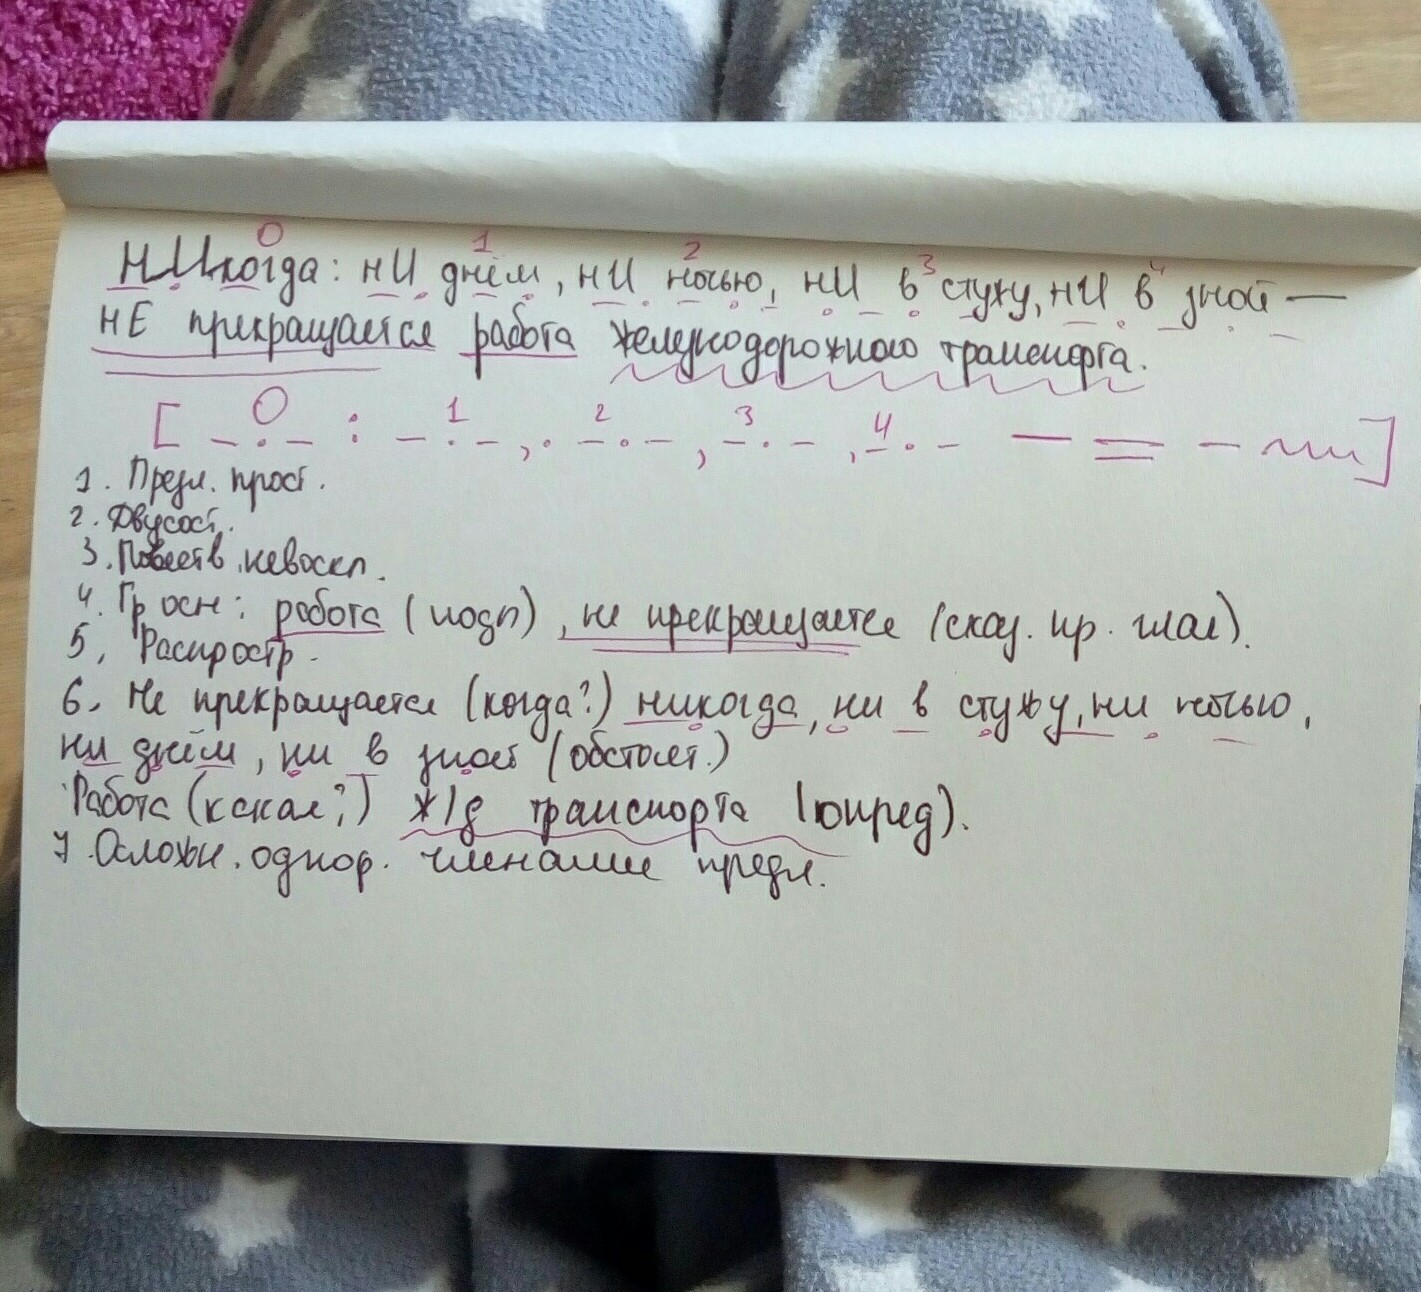 0 1 2 3 4
нИкогда: нИ днём, нИ ночью, нИ в стужу, нИ в зной —
НЕ прекращается работа железнодорожного транспорта.
[ 0 : 1 , 2 , 3 , 4 — = — ]
1. Предл. прост.
2. Двусост.
3. Повеств. невоскл.
4. Гр осн: работа (подл), не прекращается (сказ. пр. глаг).
5. Распростр.
6. Не прекращается (когда?) никогда, ни в стужу, ни ночью,
ни днём, ни в зной (обстоят.)
Работа (какая?) ж/д транспорта (опред).
7. Осложн. однор. членами предл.